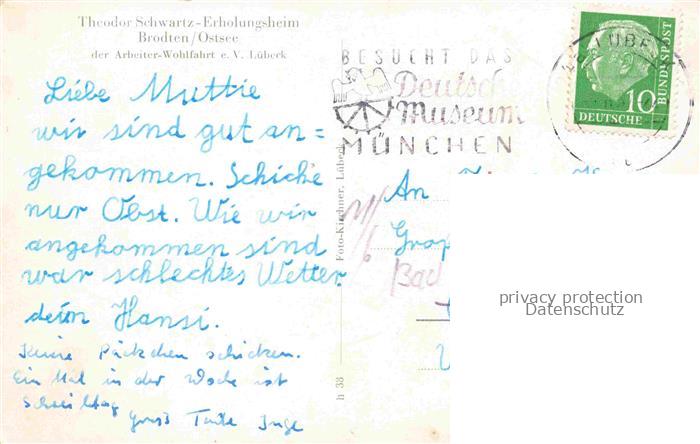 Theodor Schwartz-Erholungsheim
Brodten/Ostsee
der Arbeiter-Wohlfahrt e. V. Lübeck
Liebe Muttie
wir sind gut an=
gekommen. Schicke
nur Obst. Wie wir
angekommen sind
war schlechtes Wetter
dein Hansi.
Keine Päckchen schicken.
Ein Mal in der Woche ist
Schreibtag
Gruß Tante Inge
h 38
Foto-Kirchner, Lübeck
BESUCHT DAS
Deutsche
Museum
MÜNCHEN
LÜBE
10
DEUTSCHE
BUNDESPOST
An
Bad
privacy protection
Datenschutz